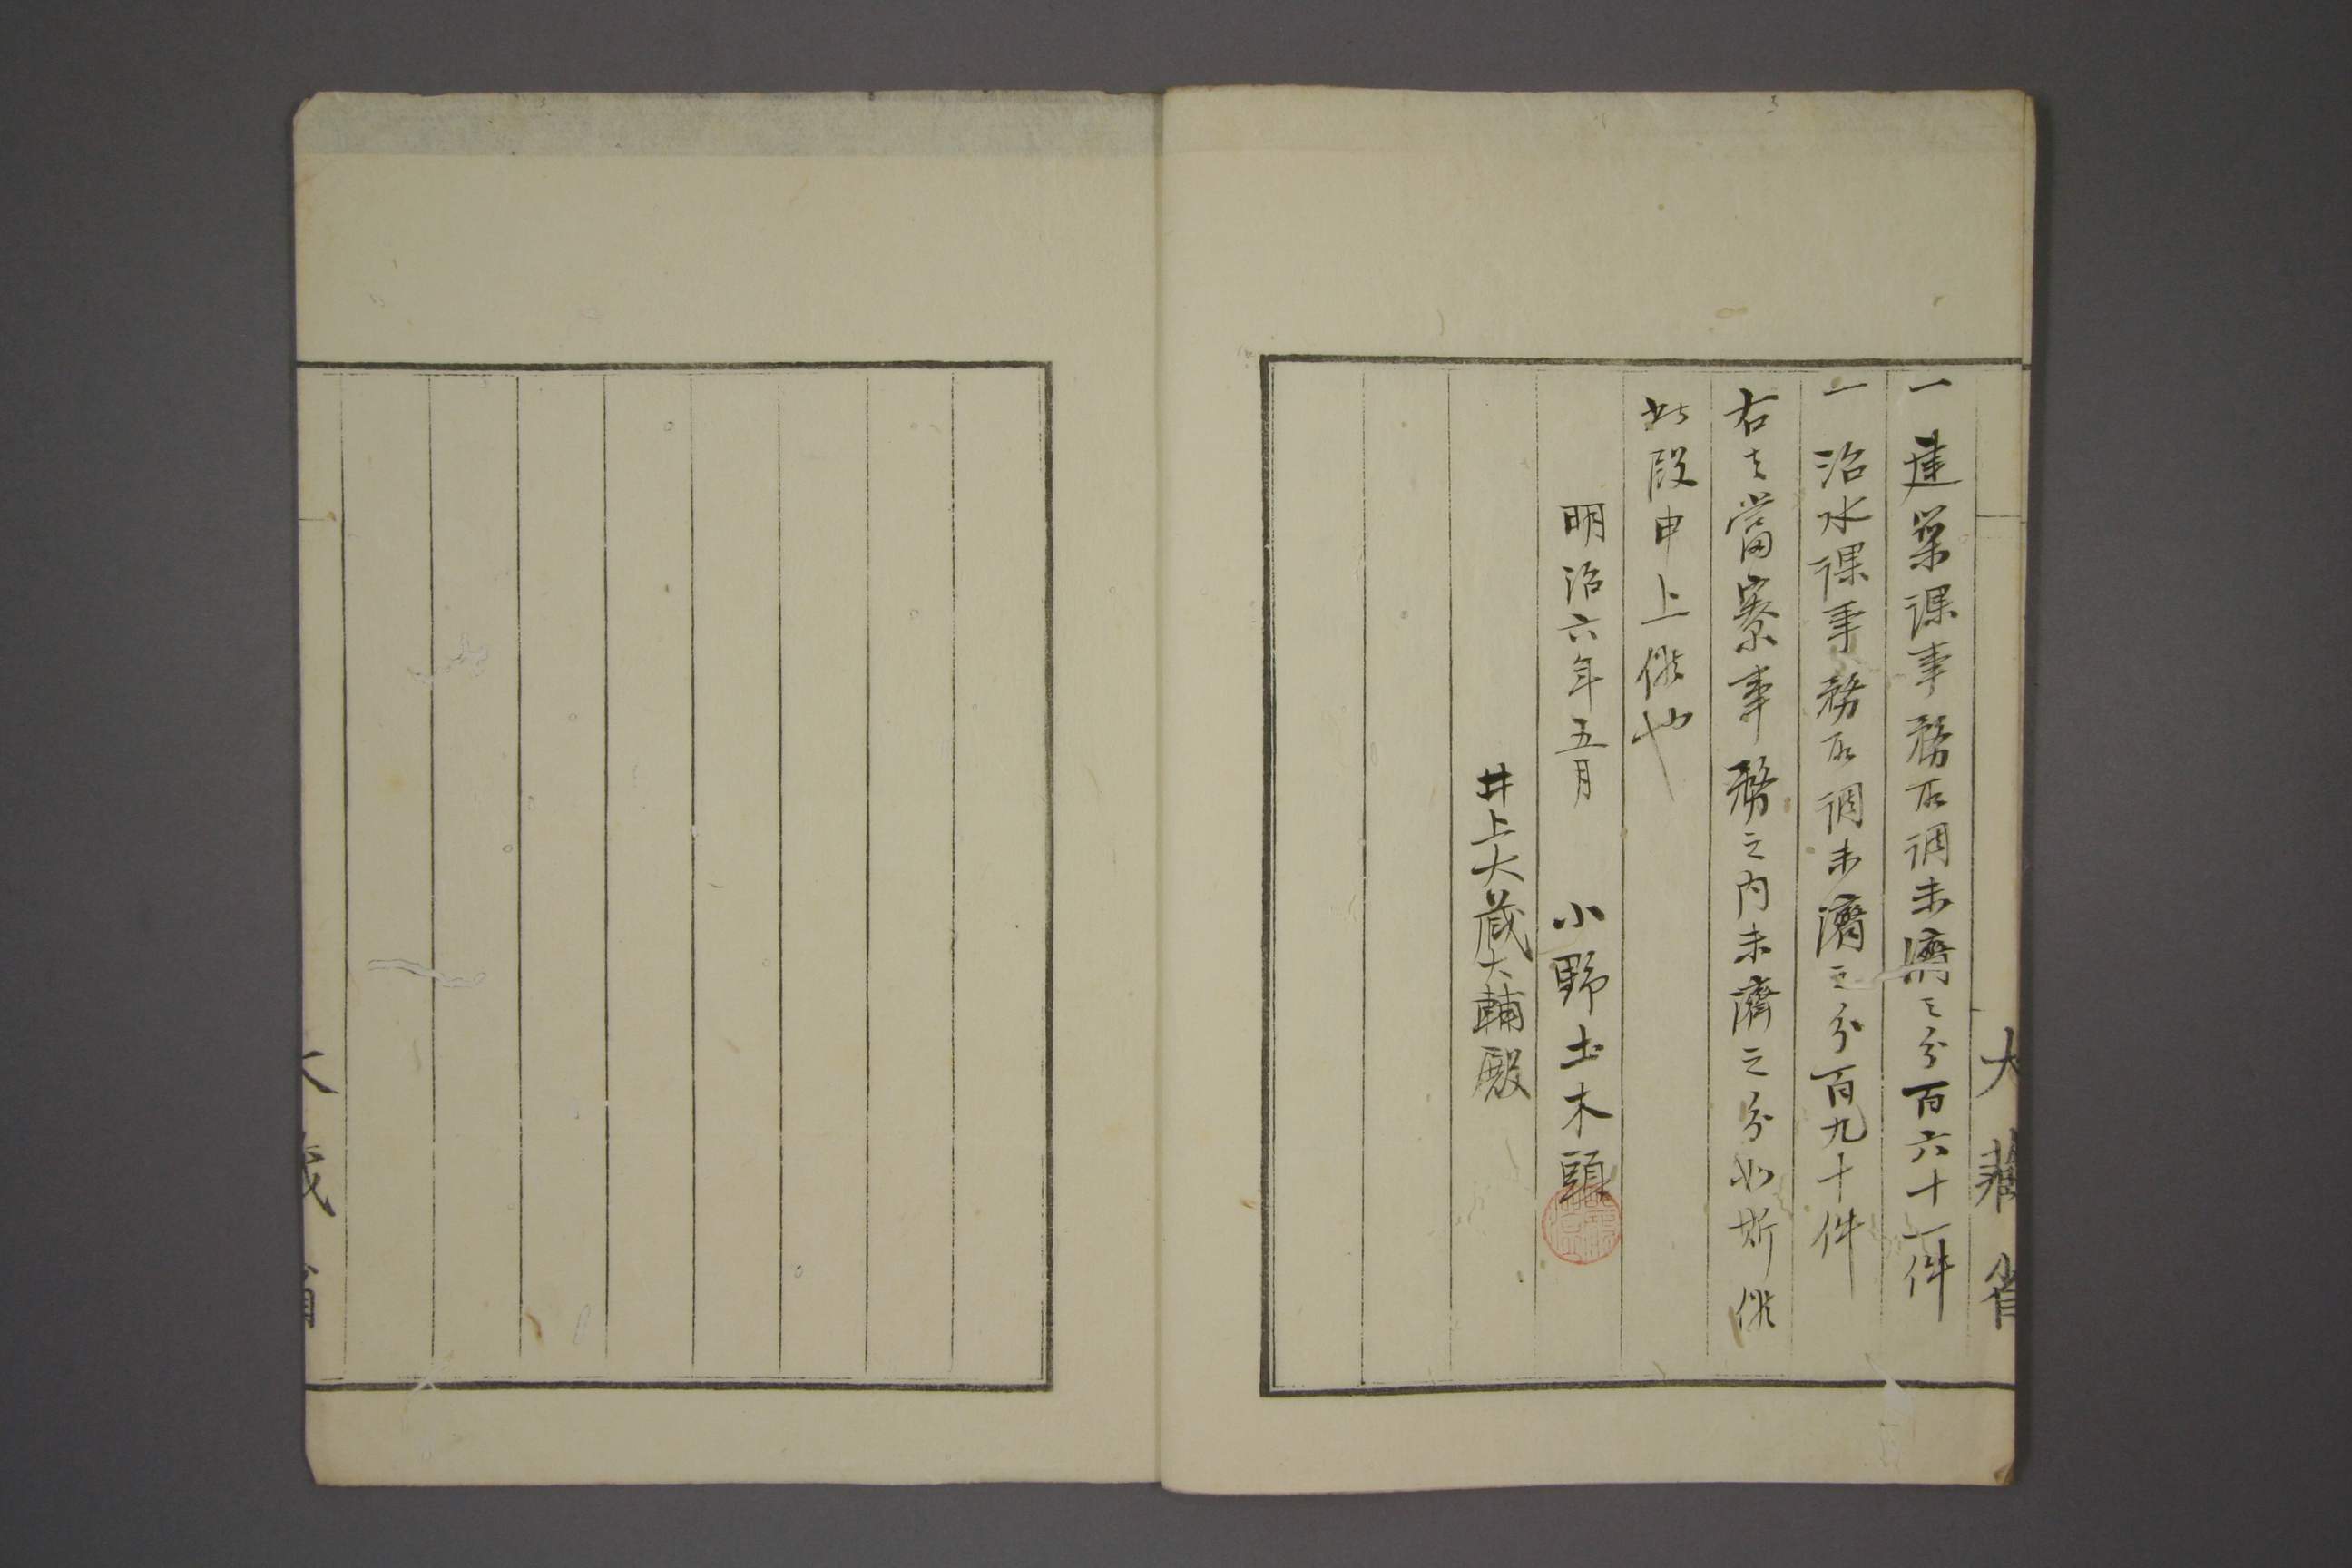 大藏省
一建築課事務取調未濟之分百六十一件
一治水課事務取調未濟之分百九十件
右者當寮事務之内未濟之分如斯候
此段申上候也
明治六年五月 小野土木頭
井上大蔵大輔殿
大藏省